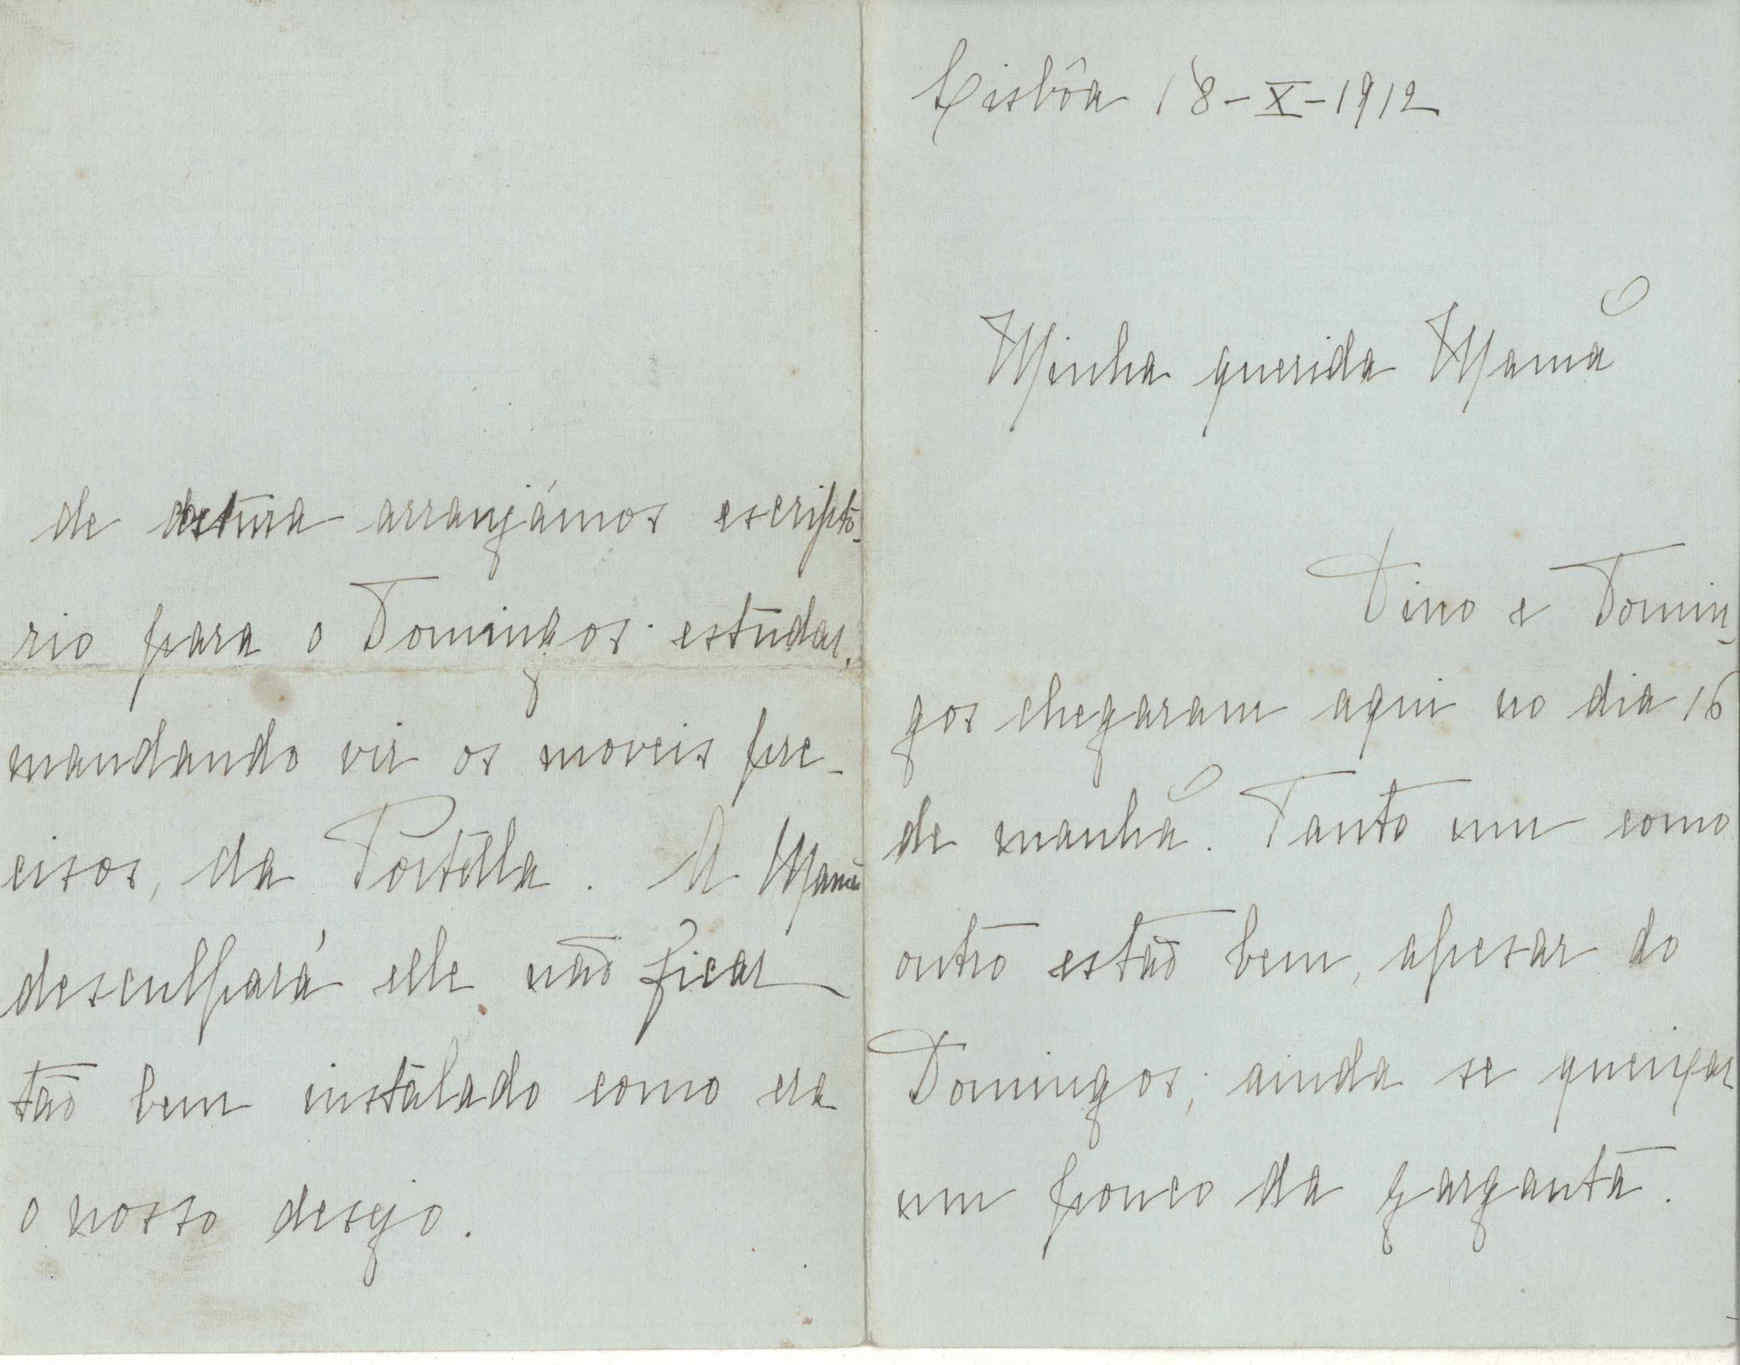 Lisbôa 18-X-1912
Minha querida Mamã
Dino e Domin-
gos chegaram aqui no dia 16
de manhã. Tanto um como
outro estão bem, apesar do
Domingos, ainda se queixar
um pouco da garganta.
de costura arranjámos escripto-
rio para o Domingos estudar,
mandando vir os moveis pre-
cisos, da Portella. A Mamã
desculpará elle não ficar
tão bem instalado como era
o nosso desejo.